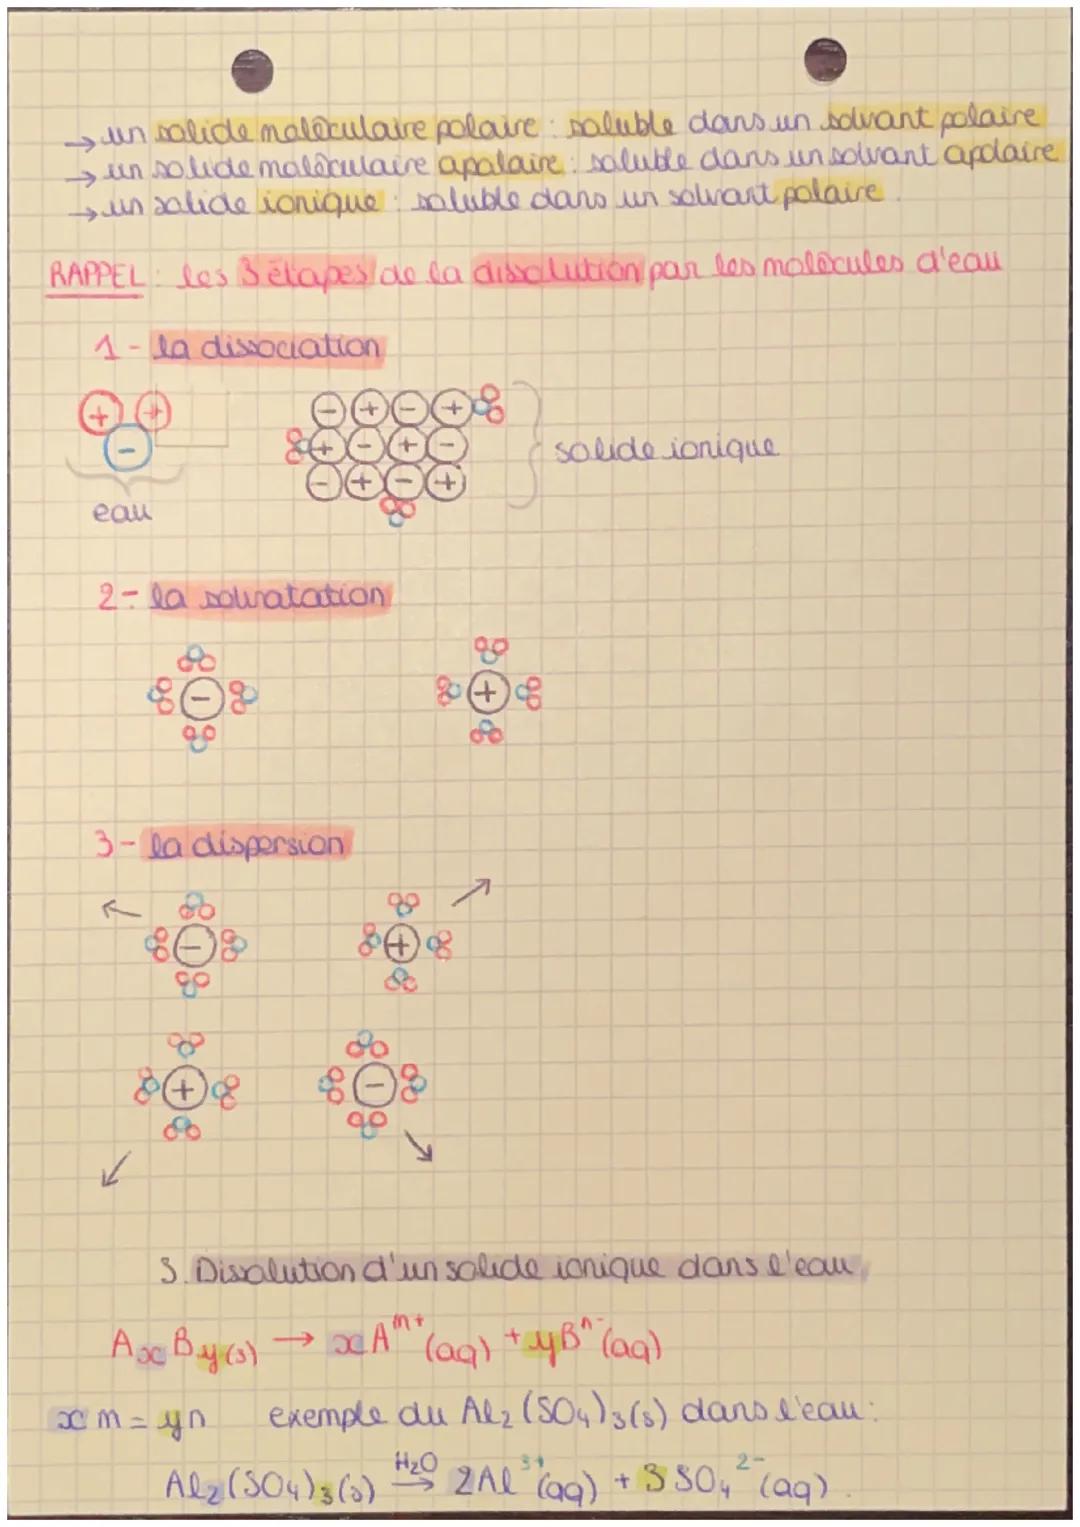 → un solide moléculaire polaire : soluble dans un solvant polaire
→ un solide moléculaire apolaire : soluble dans un solvant apolaire
→ un solide ionique : soluble dans un solvant polaire.
RAPPEL : les 3 étapes de la dissolution par les molécules d'eau
1 - la dissociation
+ +
-
- + - +
+ - + -
- + - +
solide ionique
eau
2 - la solvatation
- +
3 - la dispersion
- +
+ -
3. Dissolution d'un solide ionique dans l'eau
AₓBᵧ(s) → xAᵐ⁺(aq) + yBⁿ⁻(aq)
x m = y n exemple du Al₂(SO₄)₃(s) dans l'eau :
Al₂(SO₄)₃(s) H₂O→ 2Al³⁺(aq) + 3 SO₄²⁻(aq).